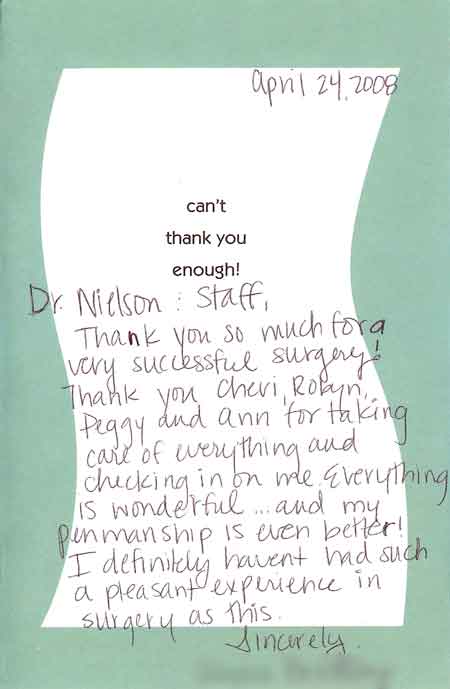 April 24, 2008
can't
thank you
enough!
Dr. Nielson : Staff,
Thank you so much for a
very successful surgery!
Thank you Cheri, Robyn,
Peggy and Ann for taking
care of everything and
checking in on me. Everything
is wonderful ... and my
penmanship is even better!
I definitely havent had such
a pleasant experience in
surgery as this.
Sincerely,